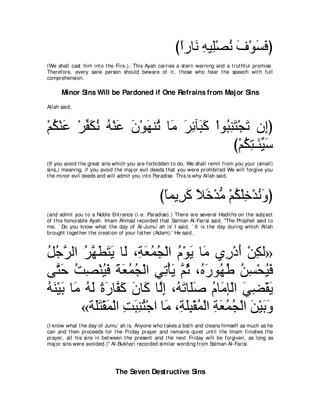 (فَسَوْفَ نُصْلِيهِ نَاراً)
(We shall cast him into the Fire,). This Ayah carries a stern warning and a truthful promise. Therefore, every sane person should beware of it, those who hear the speech with full comprehension.
Minor Sins Will be Pardoned if One Refrains from Major Sins
Allah said,
(إِن تَجْتَنِبُواْ كَبَآئِرَ مَا تُنْهَوْنَ عَنْهُ نُكَفِّرْ عَنْكُمْ
سَيِّئَـتِكُمْ)
(If you avoid the great sins which you are forbidden to do, We shall remit from you your (small) sins,) meaning, if you avoid the major evil deeds that you were prohibited We will forgive you the minor evil deeds and will admit you into Paradise. This is why Allah said,
(وَنُدْخِلْكُمْ مُّدْخَلاً كَرِيماً)
(and admit you to a Noble Entrance (i.e. Paradise).) There are several Hadiths on the subject of this honorable Ayah. Imam Ahmad recorded that Salman Al-Farisi said, "The Prophet said to me, `Do you know what the day of Al-Jumu`ah is' I said, `It is the day during which Allah brought together the creation of your father (Adam).' He said,
«لكِنْ أَدْرِي مَا يَوْمُ الْجُمُعَةِ، لَا يَتَطَهَّرُ الرَّجُلُ
فَيُحْسِنُ طُهُورَهُ، ثُمَّ يَأْتِي الْجُمُعَةَ فَيُنْصِتُ حَتَّى
يَقْضِيَ الْإِمَامُ صَلَاتَهُ، إِلَّا كَانَ كَفَّارَةً لَهُ مَا بَيْنَهُ
وَبَيْنَ الْجُمُعَةِ الْمُقْبِلَةِ، مَا اجْتُنِبَتِ الْمَقْتَلَة»
(I know what the day of Jumu`ah is. Anyone who takes a bath and cleans himself as much as he can and then proceeds for the Friday prayer and remains quiet until the Imam finishes the prayer, all his sins in between the present and the next Friday will be forgiven, as long as major sins were avoided.)" Al-Bukhari recorded similar wording from Salman Al-Farisi.
The Seven Destructive Sins